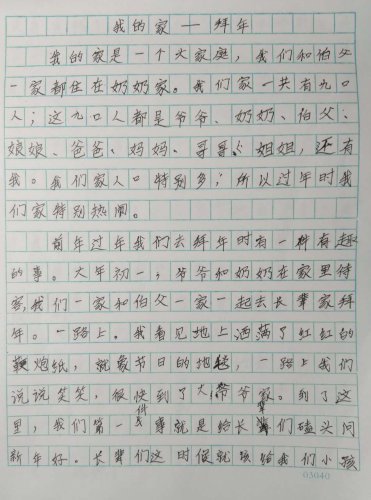 我的家—拜年
我的家是一个大家庭，我们和伯父
一家都住在奶奶家。我们家一共有九口
人；这九口人都是爷爷、奶奶、伯父、
娘娘、爸爸、妈妈、哥哥、姐姐，还有
我。我们家人口特别多；所以过年时我
们家特别热闹。
前年过年我们去拜年时有一种有趣
的事。大年初一，爷爷和奶奶在家里待
客，我们一家和伯父一家一起去长辈家拜
年。一路上。我看见地上洒满了红红的
鞭炮纸，就象节日的地毯，一路上我们
说说笑笑，很快到了大爷爷家。到了这
里，我们第一件事就是给长辈们磕头问
新年好。长辈们这时候就该给我们小孩
03040